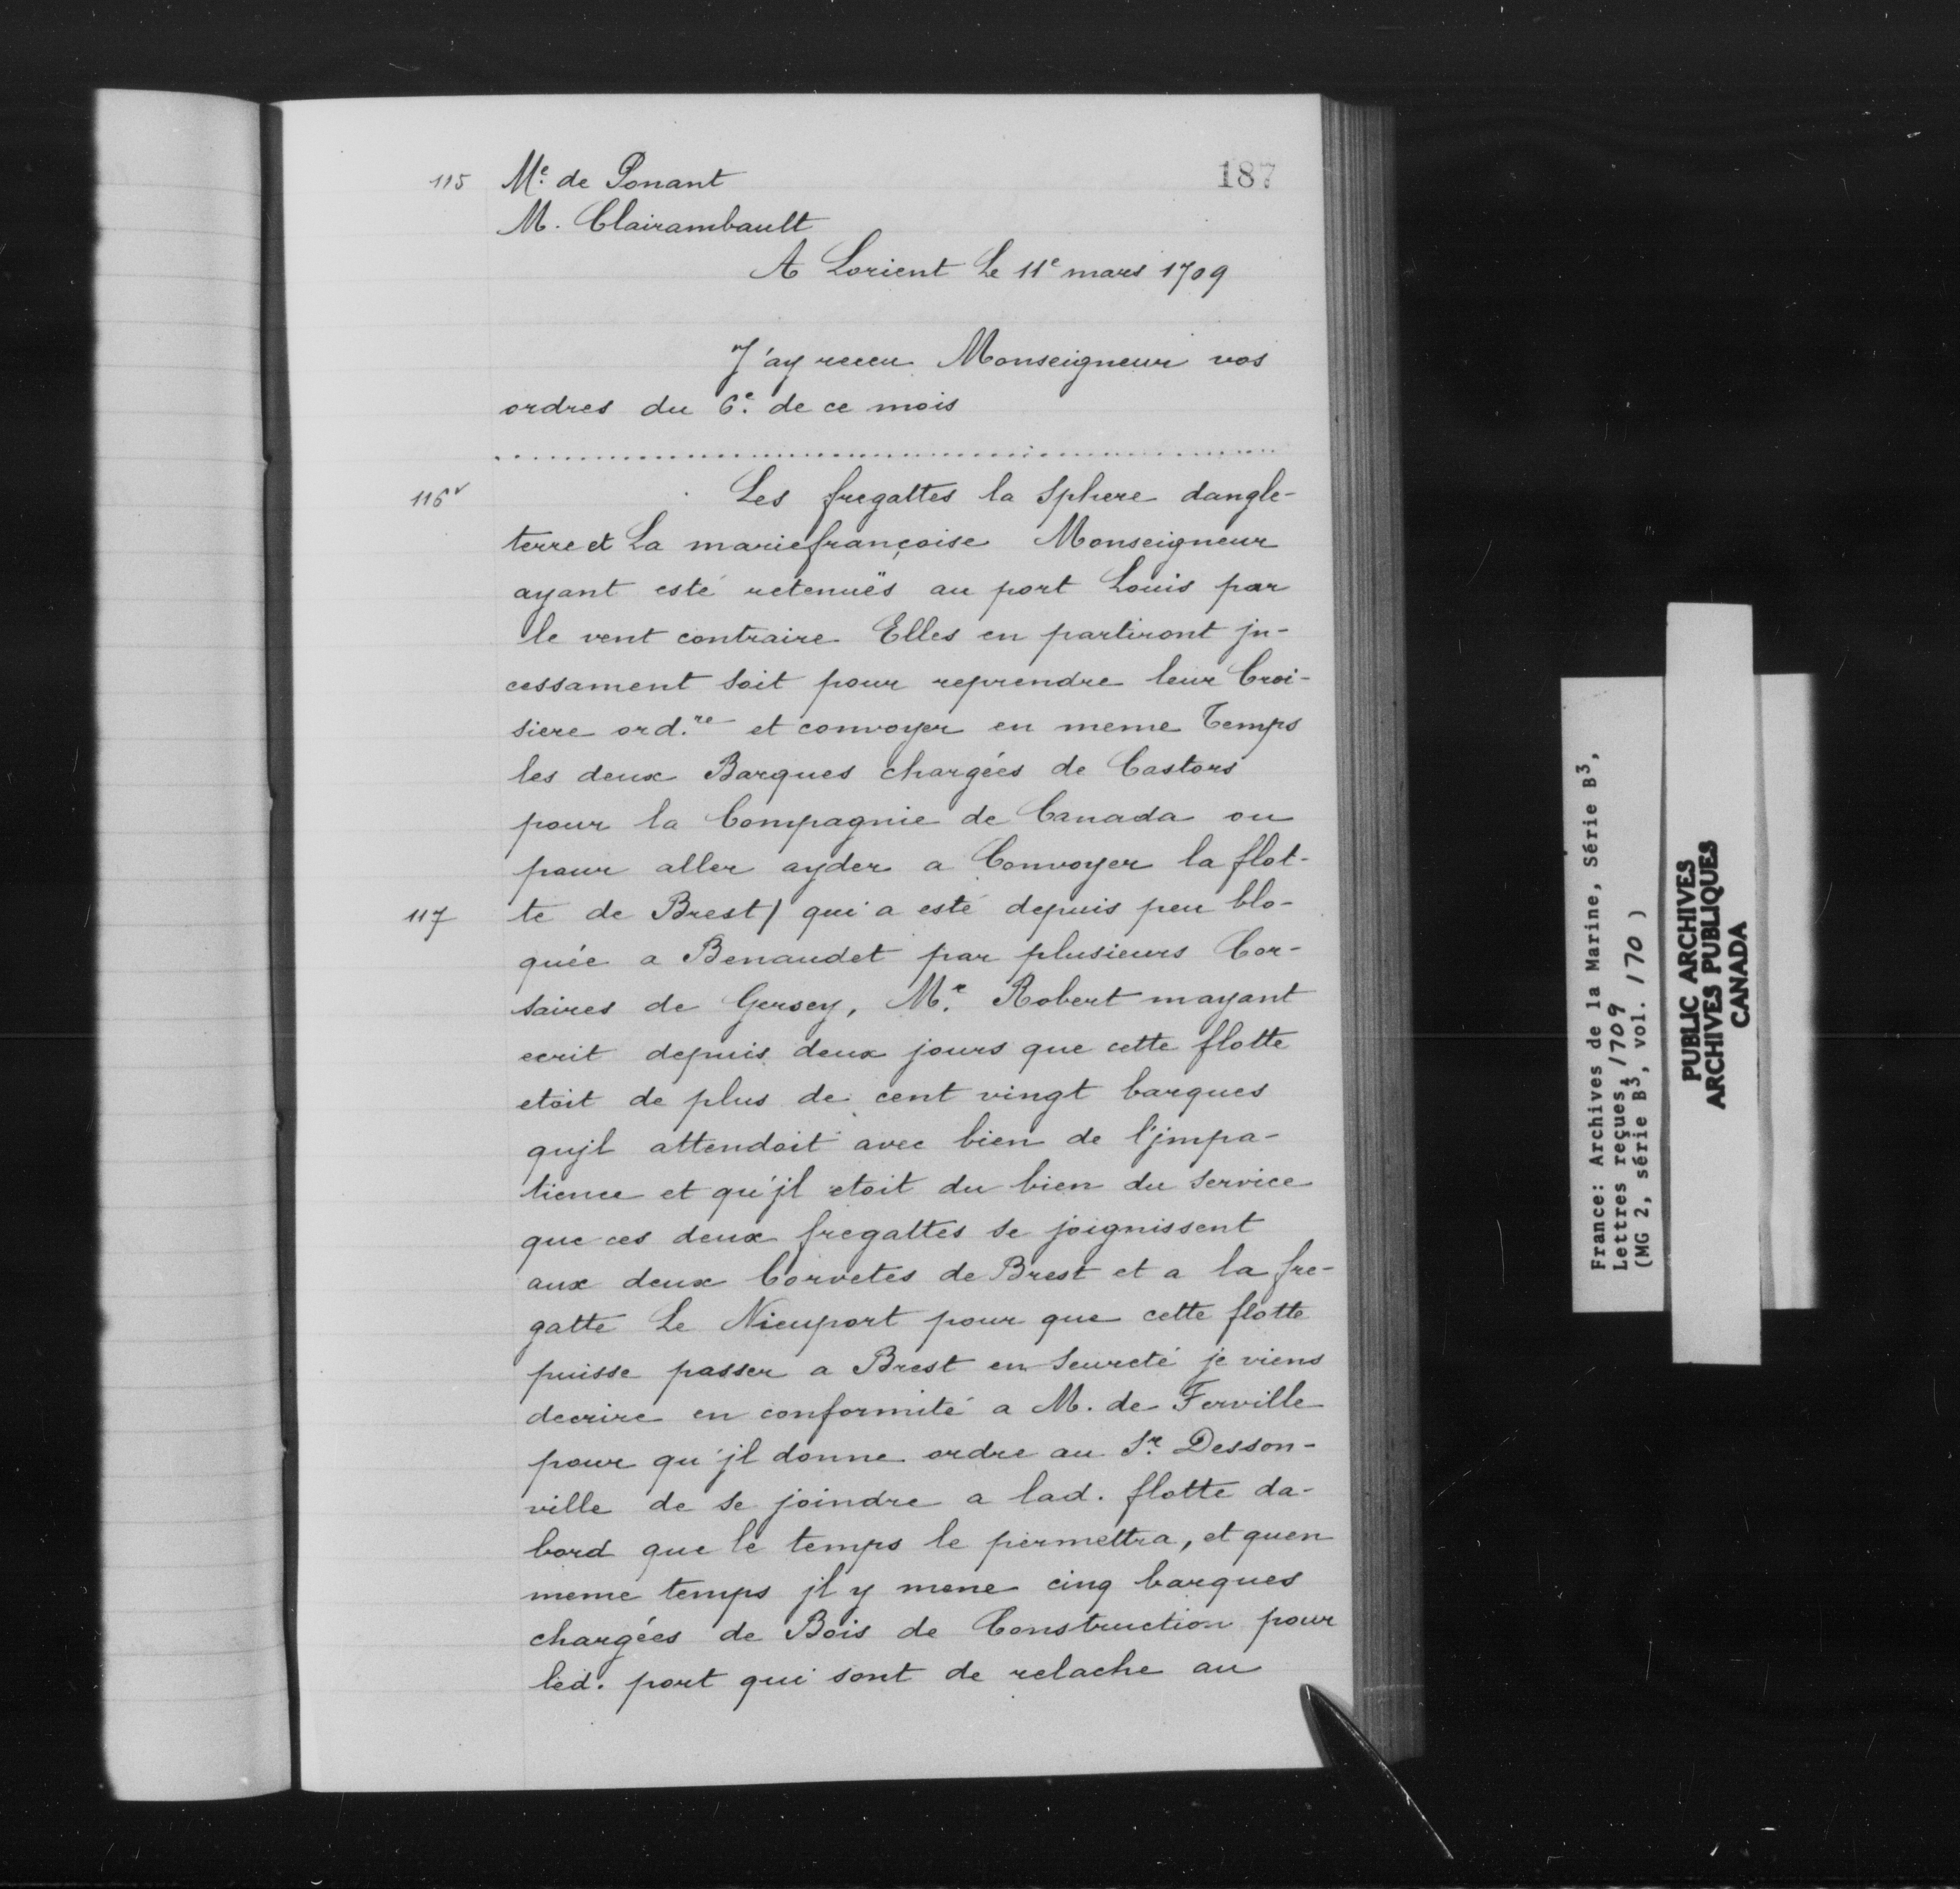 187
115 Me. de Ponant
M. Clairambault
A Lorient Le 11e mars 1709
J'ay receu Monseigneur vos
ordres du 6e. de ce mois
........................................
116v Les fregattes la Sphere dangle-
terre et La mariefrançoise Monseigneur
ayant esté retenuës au port Louis par
le vent contraire Elles en partiront jn-
cessament soit pour reprendre leur Croi-
siere ord.re et convoyer en meme Temps
les deux Barques chargées de Castors
pour la Compagnie de Canada ou
pour aller ayder a Convoyer la flot-
117 te de Brest/ qui a esté depuis peu blo-
quée a Benaudet par plusieurs Cor-
saires de Gersey, Mr. Robert mayant
ecrit depuis deux jours que cette flotte
etoit de plus de cent vingt barques
qujl attendoit avec bien de l'jmpa-
tience et qu'jl etoit du bien du service
que ces deux fregattes se joignissent
aux deux Corvetes de Brest et a la fre-
gatte Le Nieuport pour que cette flotte
puisse passer a Brest en seureté je viens
decrire en conformité a M. de Ferville
pour qu'jl donne ordre au Sr. Desson-
ville de se joindre a lad. flotte da-
bord que le temps le permettra, et quen
meme temps jl y mene cinq barques
chargées de Bois de Construction pour
led. port qui sont de relache au
France: Archives de la Marine, Série B3,
Lettres reçues, 1709
(MG 2, série B3, vol. 170 )
PUBLIC ARCHIVES
ARCHIVES PUBLIQUES
CANADA